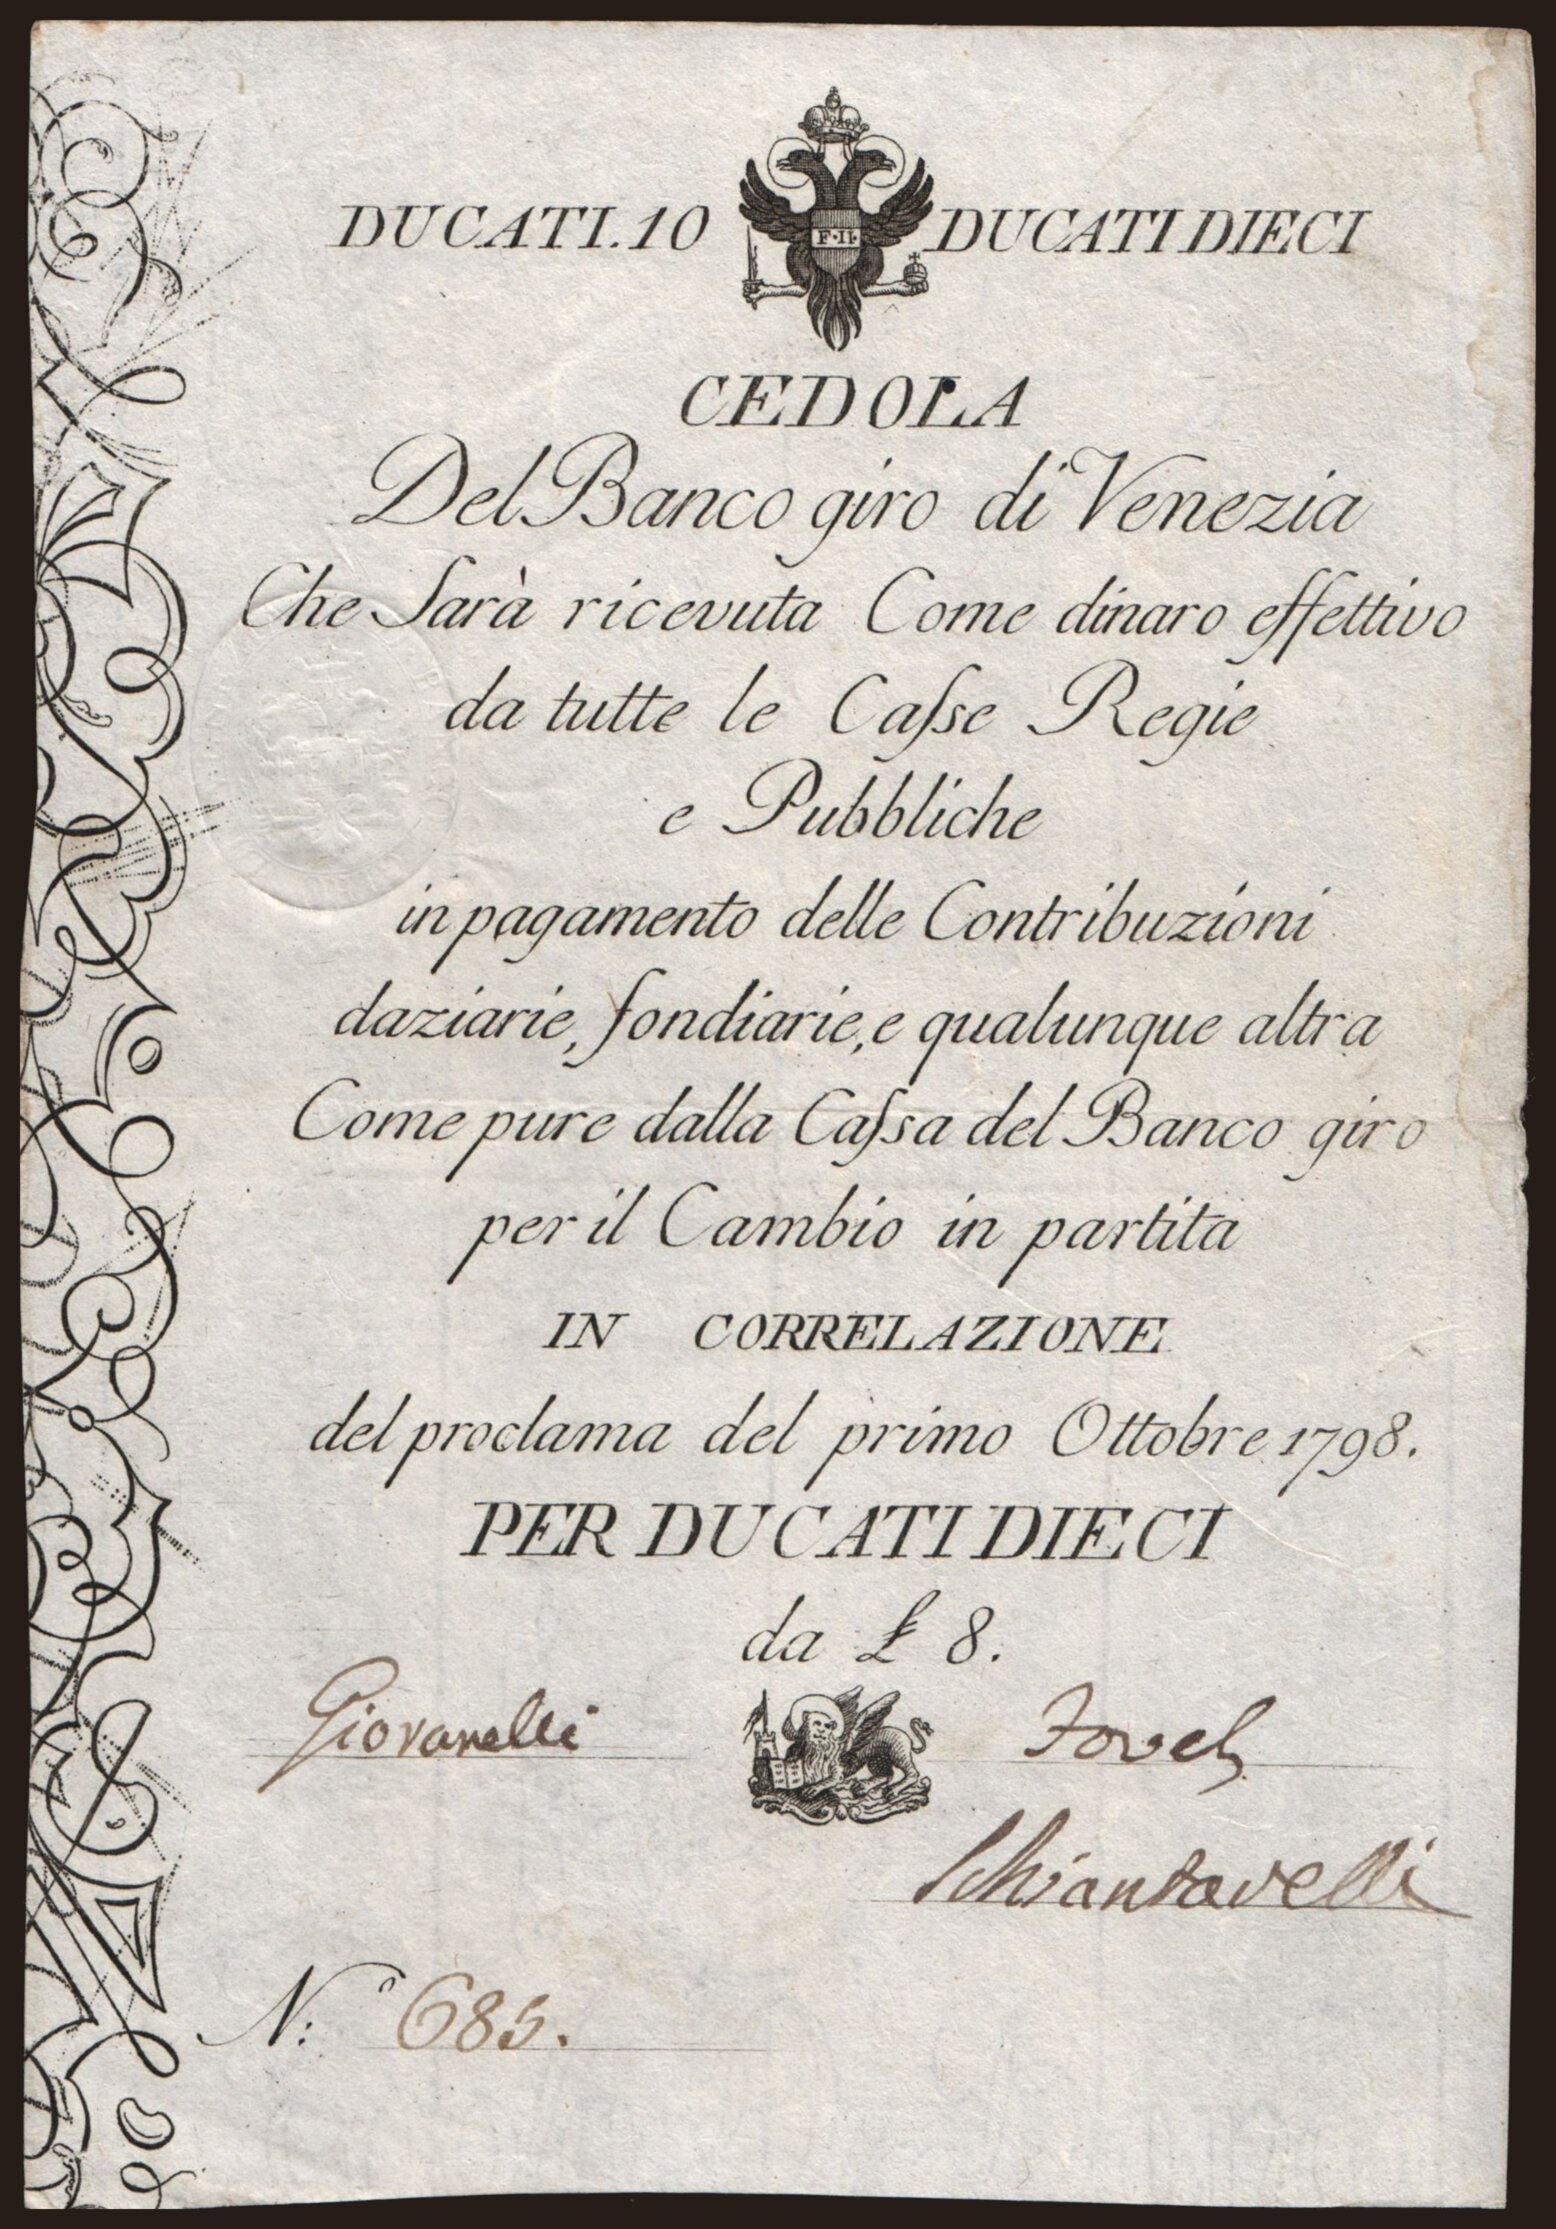 DUCATI.10 DUCATI DIECI
F·II·
CEDOLA
Del Banco giro di Venezia
Che Sarà ricevuta Come dinaro effettivo
da tutte le Caſse Regie
e Pubbliche
in pagamento delle Contribuzioni
daziarie, fondiarie, e qualunque altra
Come pure dalla Caſsa del Banco giro
per il Cambio in partita
IN CORRELAZIONE
del proclama del primo Ottobre 1798.
PER DUCATI DIECI
da £ 8.
Giovanelli
N.º 685.